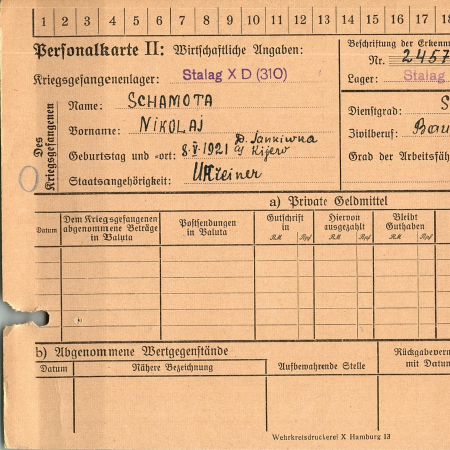 1 2 3 4 5 6 7 8 9 10 11 12 13 14 15 16 17 18
Personalkarte II: Wirtschaftliche Angaben:
Kriegsgefangenenlager: Stalag X D (310)
Des Kriegsgefangenen
Name: SCHAMOTA
Vorname: NIKOLAJ
Geburtstag und -ort: 8.V.1921 D. Jankiwka
Staatsangehörigkeit: Ukreiner
Beschriftung der Erkenn
Nr. 2457
Lager: Stalag
Dienstgrad: S
Zivilberuf: Bau
Grad der Arbeitsfäh
a) Private Geldmittel
Datum
Dem Kriegsgefangenen abgenommene Beträge in Valuta
Postsendungen in Valuta
Gutschrift in
RM Rpf
Hiervon ausgezahlt
RM Rpf
Bleibt Guthaben
RM Rpf
b) Abgenommene Wertgegenstände
Datum
Nähere Bezeichnung
Aufbewahrende Stelle
Rückgabeverm
mit Datum
Wehrkreisdruckerei X Hamburg 13